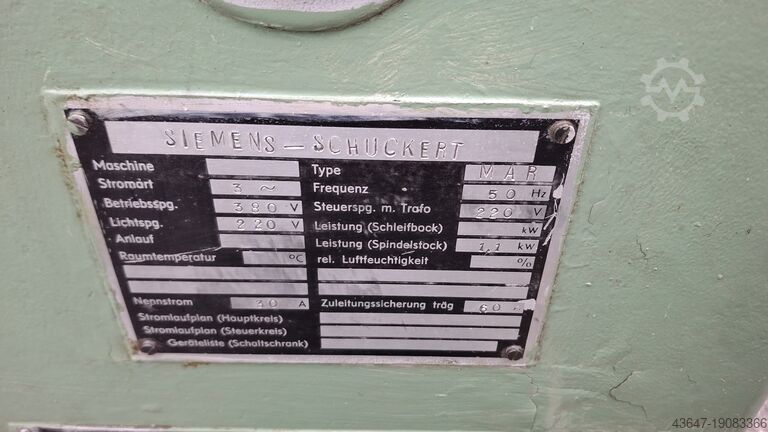 SIEMENS – SCHUCKERT
Maschine Type MAR
Stromart 3 ~ Frequenz 50 Hz
Betriebsspg. 380 V Steuerspg. m. Trafo 220 V
Lichtspg. 220 V Leistung (Schleifbock) kW
Anlauf Leistung (Spindelstock) 1,1 kW
Raumtemperatur °C rel. Luftfeuchtigkeit %
Nennstrom 30 A Zuleitungssicherung träg 60
Stromlaufplan (Hauptkreis)
Stromlaufplan (Steuerkreis)
Geräteliste (Schaltschrank)
43647-19083366